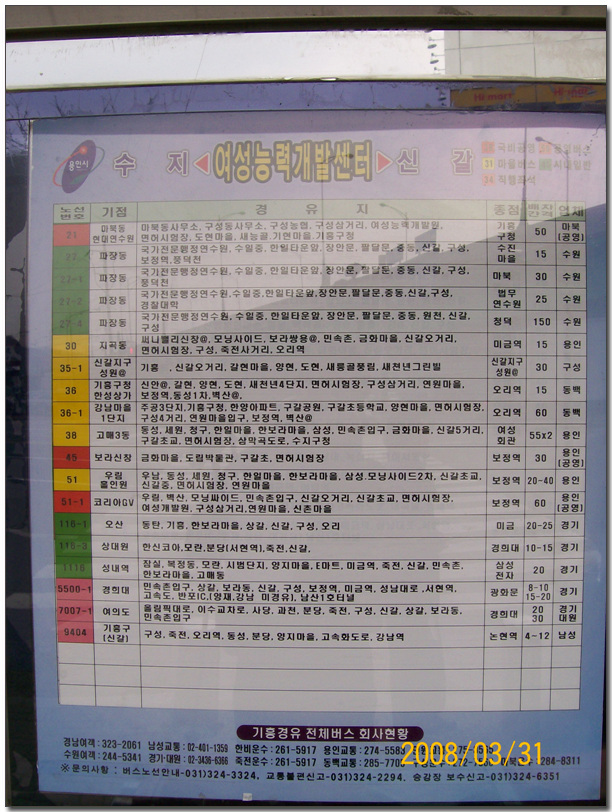 Hi mart
용인시
수 지 ◀여성능력개발센터▶ 신 갈
31 마을버스
노선번호 기점 경 유 지 종점 배차간격 업체
21 마북동 현대연수원 마북동사무소, 구성동사무소, 구성농협, 구성삼거리, 여성능력개발원, 면허시험장, 도현마을, 새능골, 기현마을, 기흥구청 기흥구청 50 마북(공영)
27 파장동 국가전문행정연수원, 수일중, 한일타운앞, 장안문, 팔달문, 중동, 신갈, 구성, 보정역, 풍덕천 수진마을 15 수원
27-1 파장동 국가전문행정연수원, 수일중, 한일타운앞, 장안문, 팔달문, 중동, 신갈, 구성, 풍덕천 마북 30 수원
27-2 파장동 국가전문행정연수원, 수일중, 한일타운앞, 장안문, 팔달문, 중동, 신갈, 구성, 경찰대학 법무연수원 25 수원
27-4 파장동 국가전문행정연수원, 수일중, 한일타운앞, 장안문, 팔달문, 중동, 원천, 신갈, 구성 청덕 150 수원
30 지곡동 써니밸리신창@, 모닝사이드, 보라쌍용@, 민속촌, 금화마을, 신갈오거리, 면허시험장, 구성, 죽전사거리, 오리역 미금역 15 용인
35-1 신갈지구 성원@ 기흥, 신갈오거리, 갈현마을, 양현, 도현, 새롱골풍림, 새천년그린빌 신갈지구 성원@ 30 구성
36 기흥구청 한성상가 신안@, 갈현, 양현, 도현, 새천년4단지, 면허시험장, 구성삼거리, 연원마을, 보정역, 동성1차, 벽산@. 오리역 15 동백
36-1 강남마을 1단지 주공3단지, 기흥구청, 한양아파트, 구갈공원, 구갈초등학교, 양현마을, 면허시험장, 구성4거리, 연원마을입구, 보정역, 벽산@ 오리역 60 동백
38 고매3동 동성, 세원, 청구, 한일마을, 한보라마을, 삼성, 민속촌입구, 금화마을, 신갈5거리, 구갈초교, 면허시험장, 삼막곡도로, 수지구청 여성회관 55x2 용인
45 보라신창 금화마을, 도립박물관, 구갈초교, 면허시험장 보정역 30 용인(공영)
51 우림 룰인원 우남, 동성, 세원, 청구, 한일마을, 한보라마을, 삼성.모닝사이드2차, 신갈초교, 신갈중, 면허시험장, 연원마을 보정역 20-40 용인
51-1 코리아GV 우림, 벽산, 모닝싸이드, 민속촌입구, 신갈오거리, 신갈초교, 면허시험장, 여성개발원, 구성삼거리, 연원마을, 신촌마을 보정역 60 용인(공영)
116-1 오산 동탄, 기흥, 한보라마을, 상갈, 신갈, 구성, 오리 미금 20-25 경기
116-3 상대원 한신코아, 모란, 분당(서현역), 죽전, 신갈, 경희대 10-15 경기
1116 성내역 잠실, 복정동, 모란, 시범단지, 양지마을, E마트, 미금역, 죽전, 신갈, 민속촌, 한보라마을, 고매동 삼성전자 20 경기
5500-1 경희대 민속촌입구, 상갈, 보라동, 신갈, 구성, 보정역, 미금역, 성남대로, 서현역, 고속도, 반포IC,(양재,강남 미경유), 남산1호터널 광화문 8-10 15-20 경기
7007-1 여의도 올림픽대로, 이수교차로, 사당, 과천, 분당, 죽전, 구성, 신갈, 상갈, 보라동, 민속촌입구 경희대 20 30 경기 대원
9404 기흥구(신갈) 구성, 죽전, 오리역, 동성, 분당, 양지마을, 고속화도로, 강남역 논현역 4-12 남성
기흥경유 전체버스 회사현황
경남여객 : 323-2061 남성교통 : 02-401-1359 한비운수 : 261-5917 용인교통 : 274-5583
수원여객 : 244-5341 경기·대원 : 02-3436-6366 죽전운수 : 261-5917 동백교통 : 284-8311
※ 문의사항 : 버스노선안내-031)324-3324, 교통불편신고-031)324-2294, 승강장 보수신고-031)324-6351
2008/03/31